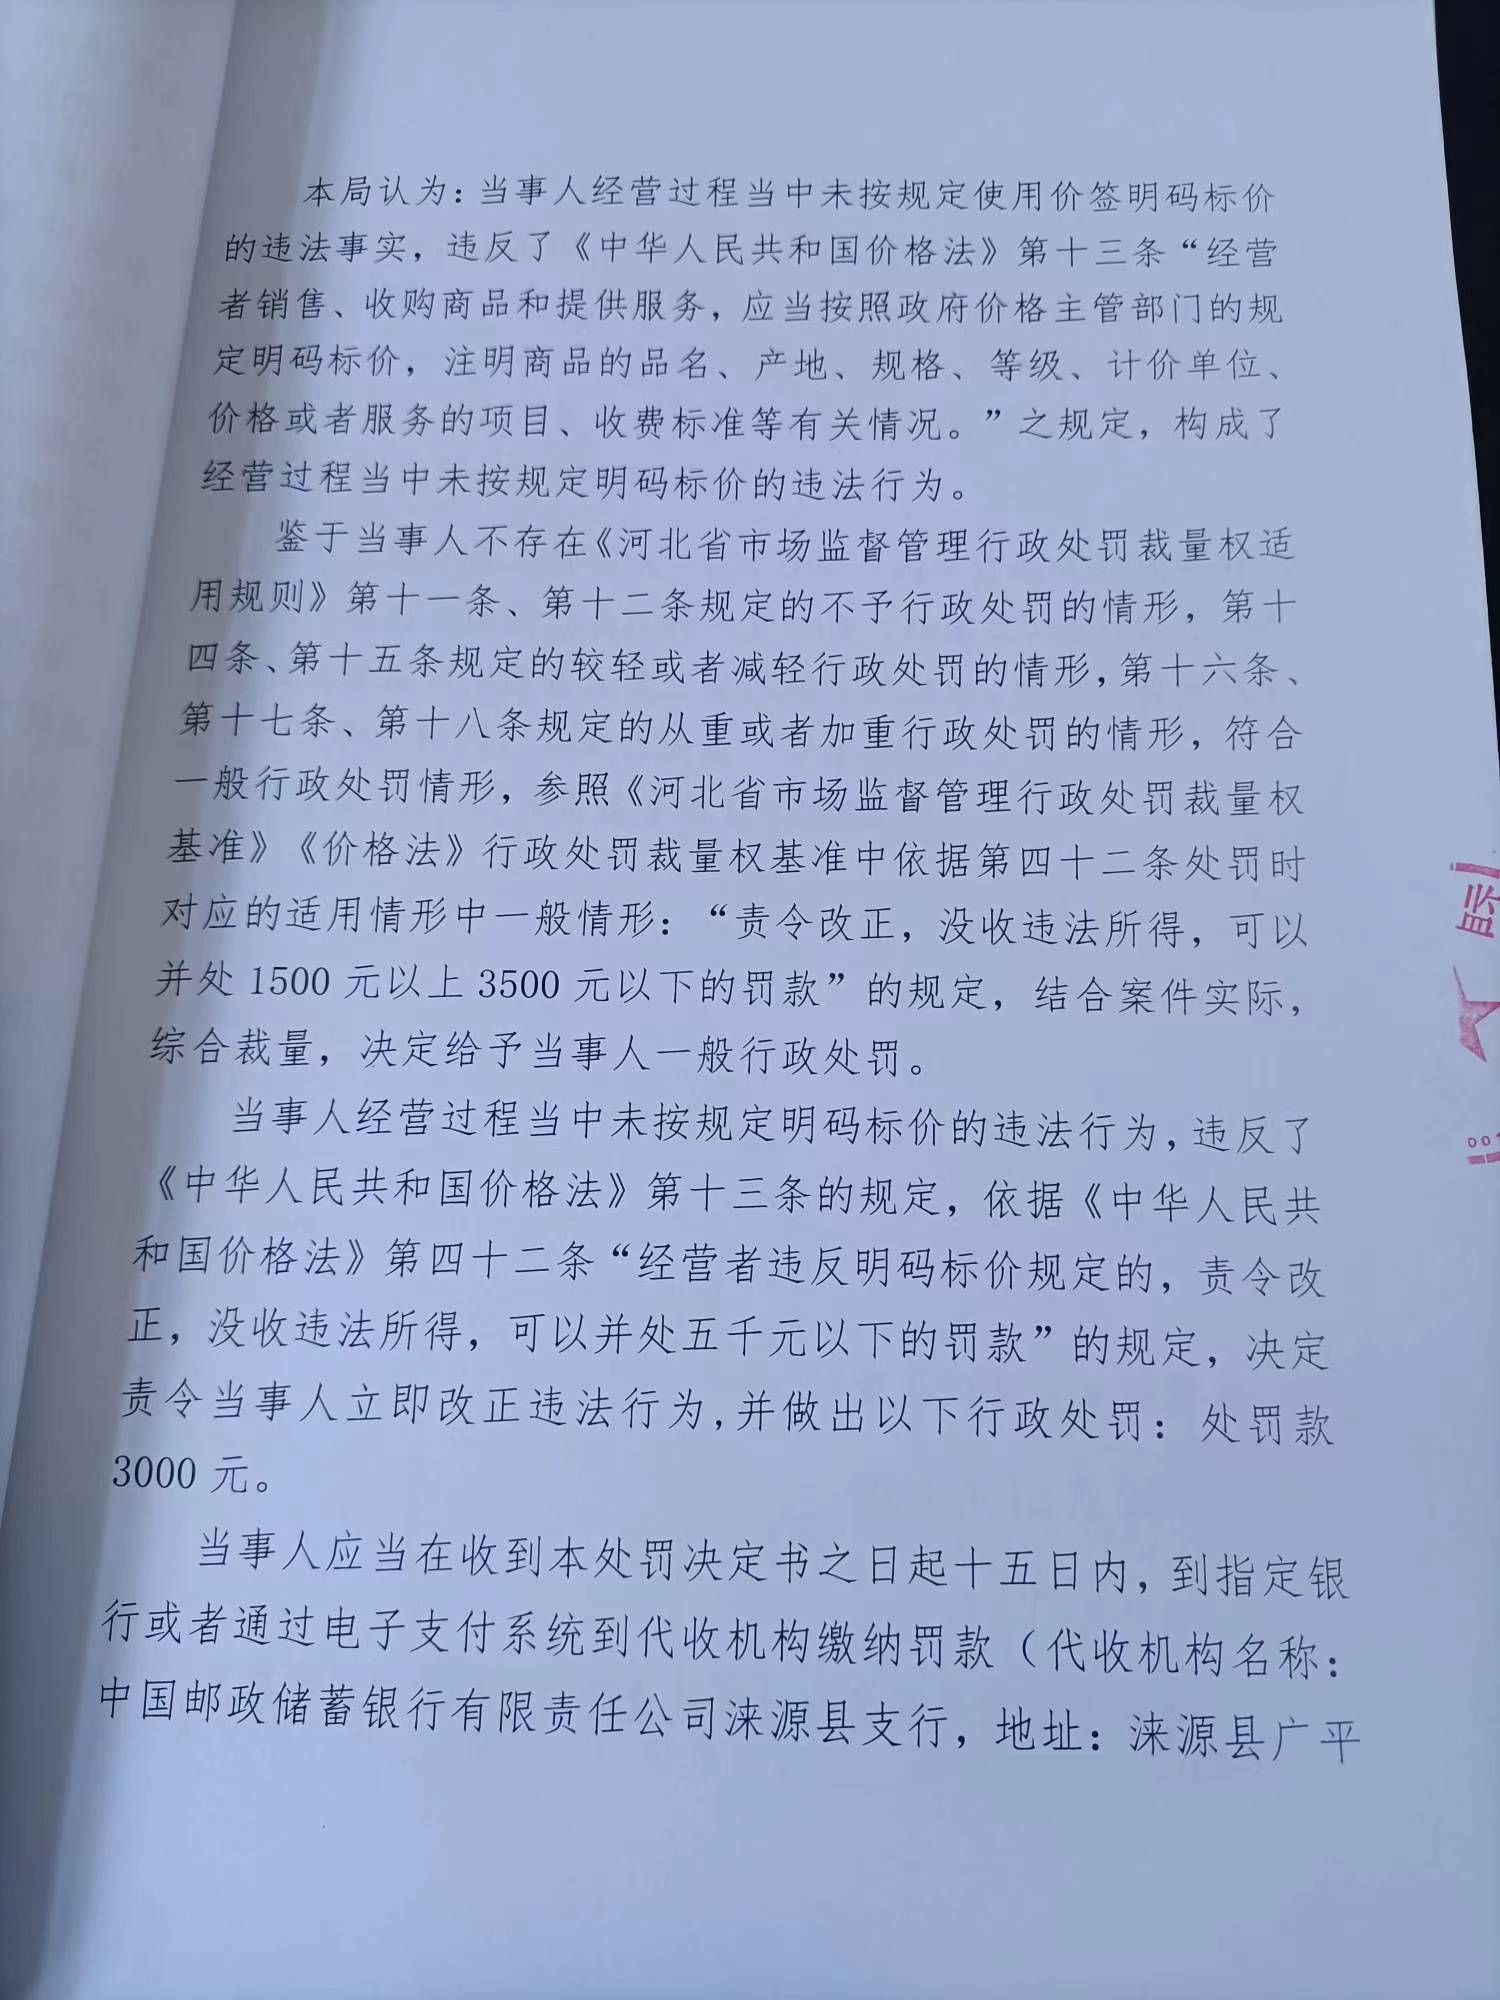 本局认为：当事人经营过程当中未按规定使用价签明码标价
的违法事实，违反了《中华人民共和国价格法》第十三条“经营
者销售、收购商品和提供服务，应当按照政府价格主管部门的规
定明码标价，注明商品的品名、产地、规格、等级、计价单位、
价格或者服务的项目、收费标准等有关情况。”之规定，构成了
经营过程当中未按规定明码标价的违法行为。
鉴于当事人不存在《河北省市场监督管理行政处罚裁量权适
用规则》第十一条、第十二条规定的不予行政处罚的情形，第十
四条、第十五条规定的较轻或者减轻行政处罚的情形，第十六条、
第十七条、第十八条规定的从重或者加重行政处罚的情形，符合
一般行政处罚情形，参照《河北省市场监督管理行政处罚裁量权
基准》《价格法》行政处罚裁量权基准中依据第四十二条处罚时
对应的适用情形中一般情形：“责令改正，没收违法所得，可以
并处 1500 元以上 3500 元以下的罚款”的规定，结合案件实际，
综合裁量，决定给予当事人一般行政处罚。
当事人经营过程当中未按规定明码标价的违法行为，违反了
《中华人民共和国价格法》第十三条的规定，依据《中华人民共
和国价格法》第四十二条“经营者违反明码标价规定的，责令改
正，没收违法所得，可以并处五千元以下的罚款”的规定，决定
责令当事人立即改正违法行为，并做出以下行政处罚：处罚款
3000 元。
当事人应当在收到本处罚决定书之日起十五日内，到指定银
行或者通过电子支付系统到代收机构缴纳罚款（代收机构名称：
中国邮政储蓄银行有限责任公司涞源县支行，地址：涞源县广平
监